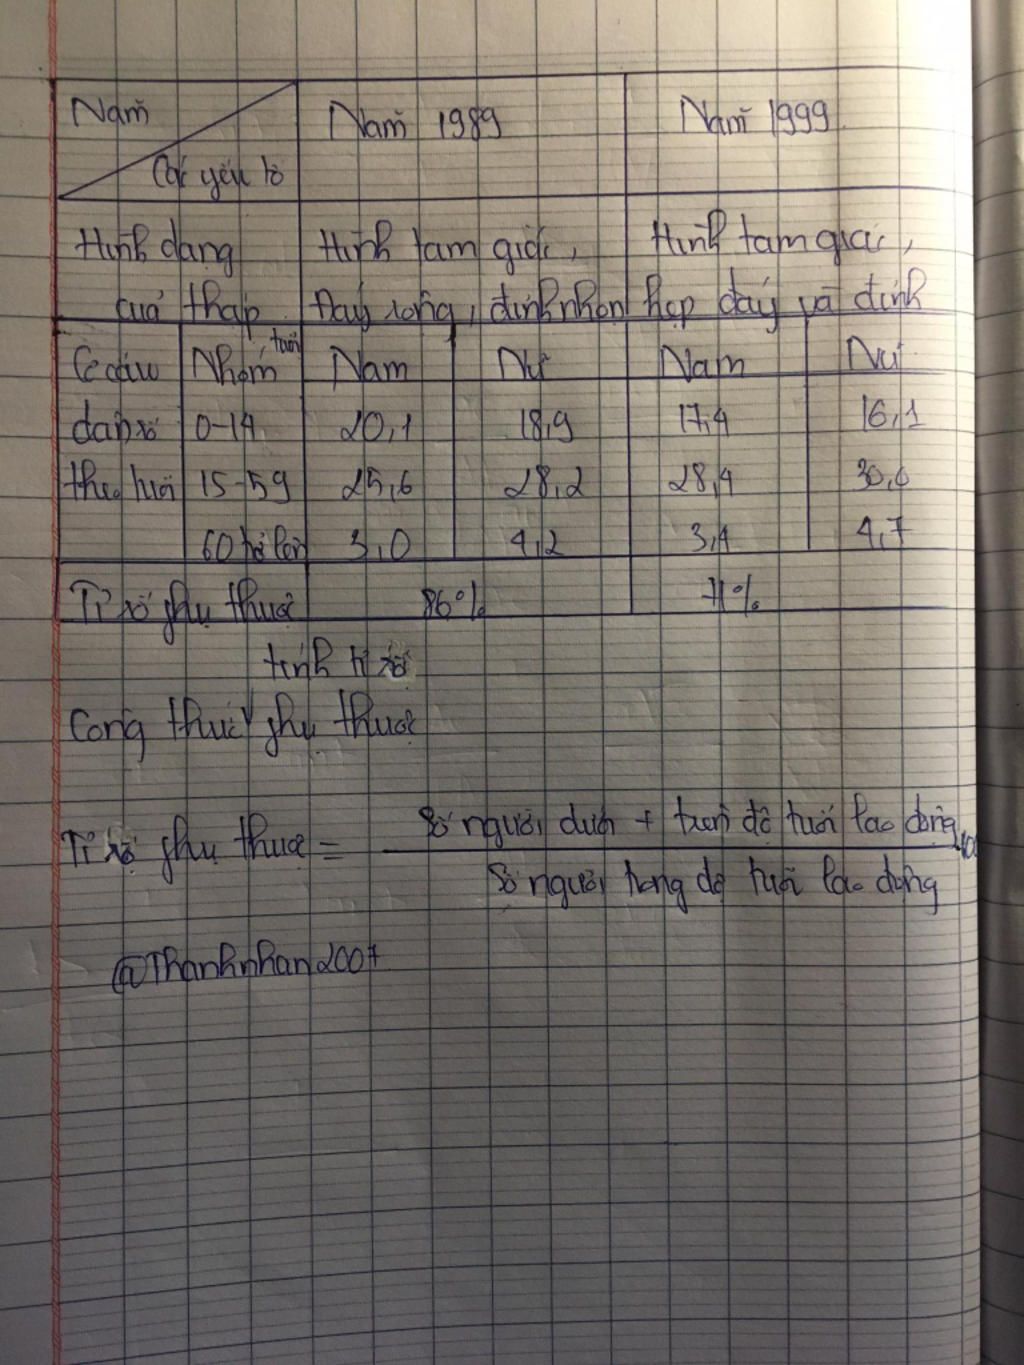 Năm
Năm 1989
Năm 1999
Các yếu tố
Hình dạng
Hình tam giác,
Hình tam giác,
của tháp
Đáy rộng, đỉnh nhọn
hẹp đáy và đỉnh
Cơ cấu
Nhóm tuổi
Nam
Nữ
Nam
Nữ
dân số
0-14
20,1
18,9
17,4
16,1
theo tuổi
15-59
25,6
28,2
28,4
30,0
60 trở lên
3,0
4,2
3,4
4,7
Tỉ số phụ thuộc
86%
71%
tính tỉ số
Công thức phụ thuộc
Tỉ số phụ thuộc = Số người dưới + trên độ tuổi lao động
Số người trong độ tuổi lao động
@Thanhnhan2007